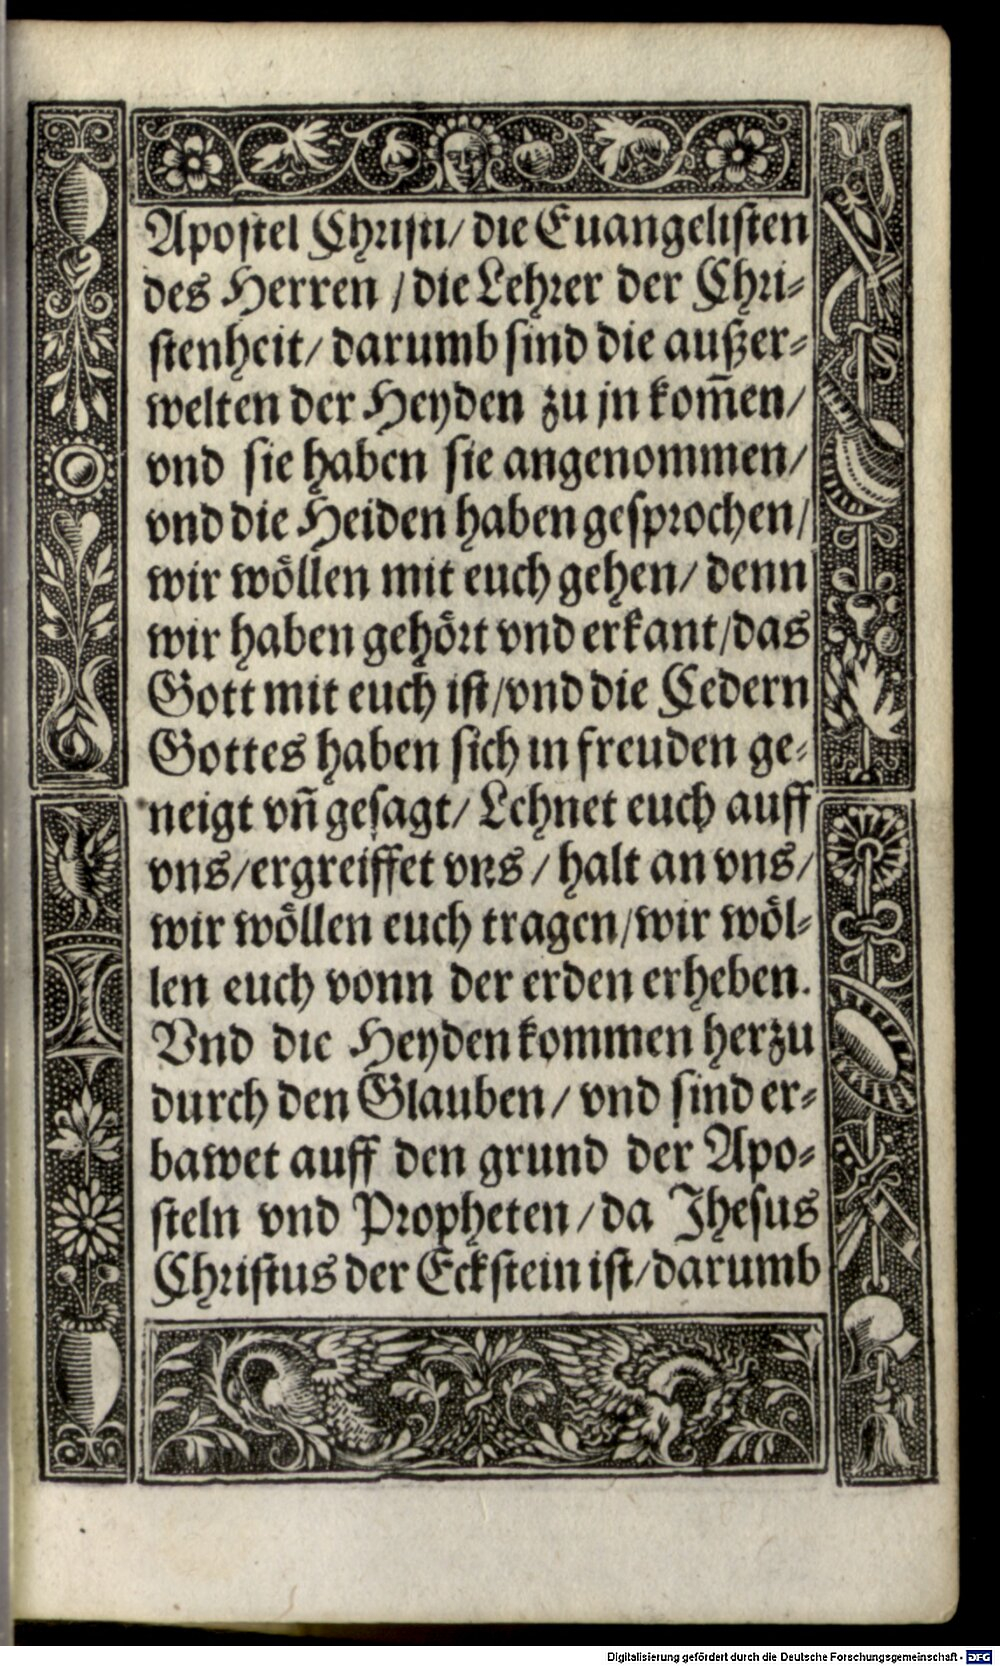 Apostel Christi/ die Euangelisten
des Herren / die Lehrer der Chri-
stenheit/ darumb sind die außer-
welten der Heyden zu jn kom̅en/
vnd sie haben sie angenommen/
vnd die Heiden haben gesprochen/
wir wöllen mit euch gehen/ denn
wir haben gehört vnd erkant/das
Gott mit euch ist/vnd die Cedern
Gottes haben sich in freuden ge-
neigt vn̅ gesagt/ Lehnet euch auff
vns/ergreiffet vns / halt an vns/
wir wöllen euch tragen/wir wöl-
len euch vonn der erden erheben.
Vnd die Heyden kommen herzu
durch den Glauben/ vnd sind er-
bawet auff den grund der Apo-
steln vnd Propheten/da Jhesus
Christus der Eckstein ist/darumb
Digitalisierung gefördert durch die Deutsche Forschungsgemeinschaft - DFG